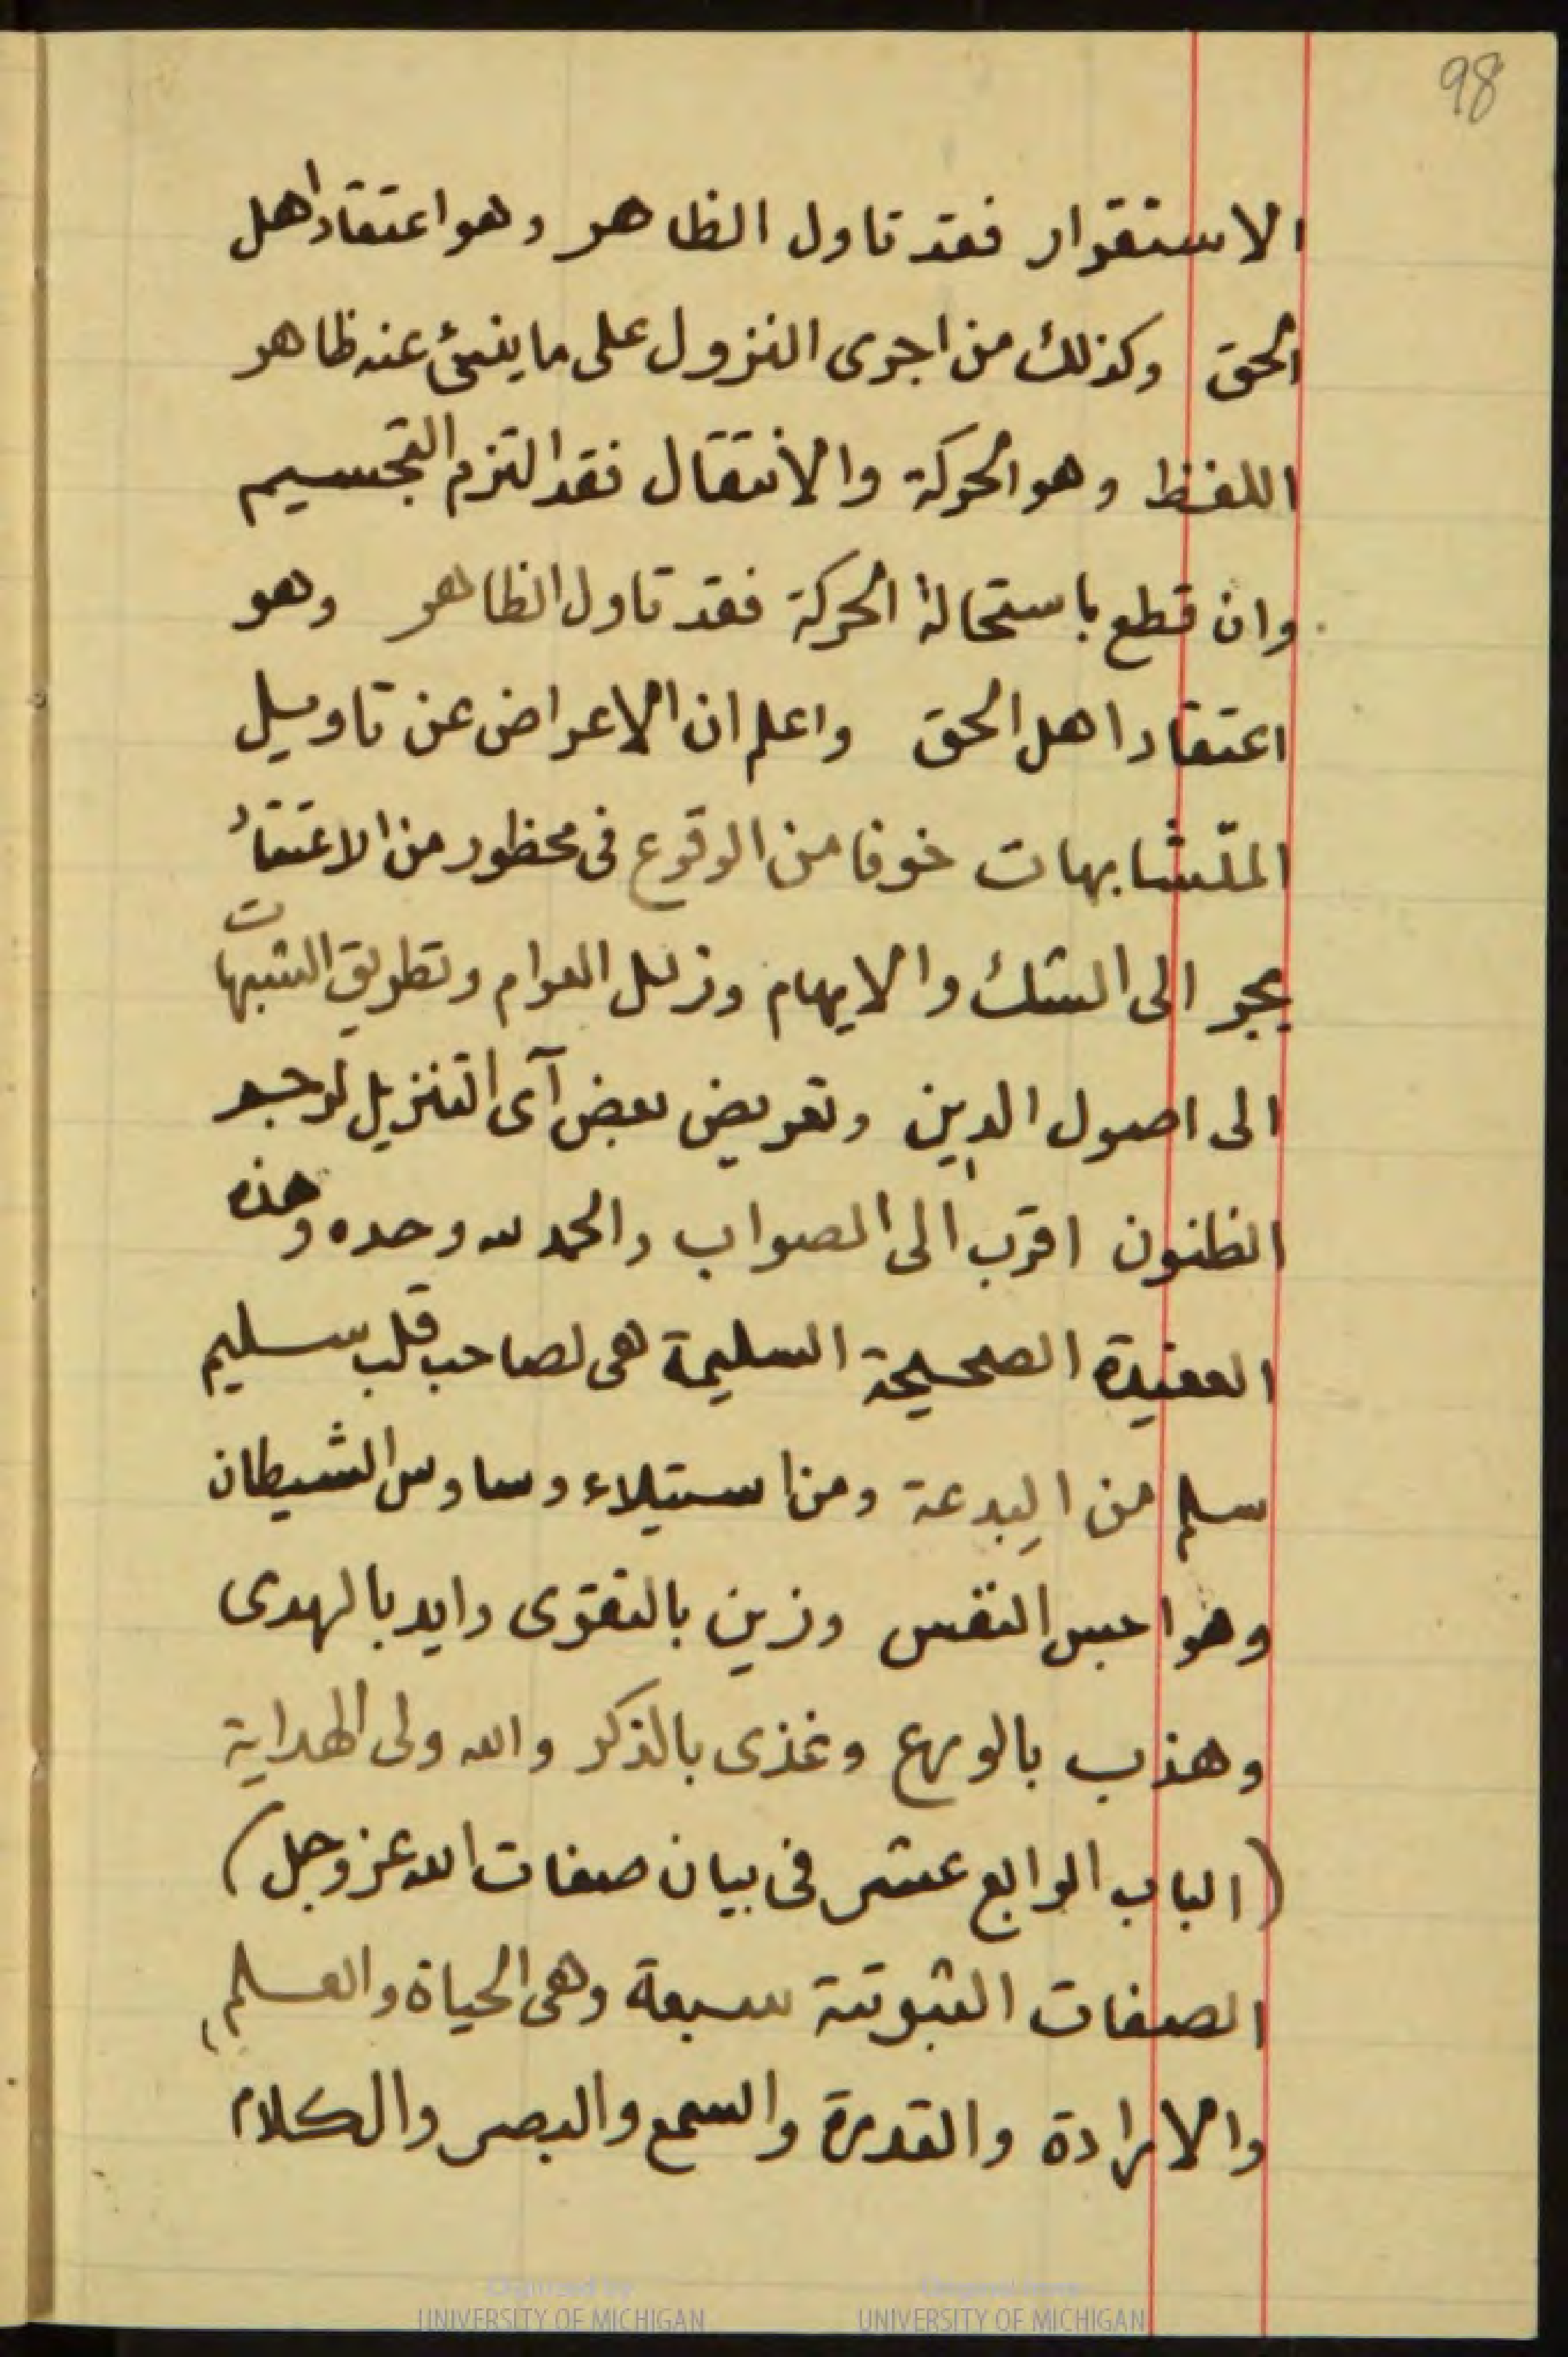 98
الاستقرار فقد تاول الظاهر وهو اعتقاد اهل
الحق وكذلك من اجرى النزول على ما ينبئ عنه ظاهر
اللفظ وهو الحركة والانتقال فقد التزم التجسيم
وان قطع باستحالة الحركة فقد تاول الظاهر وهو
اعتقاد اهل الحق واعلم ان الاعراض عن تاويل
المتشابهات خوفا من الوقوع فى محظور من الاعتقاد
يجر الى الشك والايهام وزلل العوام وتطريق الشبهات
الى اصول الدين وتعريض بعض آى التنزيل لرجم
الظنون اقرب الى الصواب والحمد لله وحده وهذه
العقيدة الصحيحة السليمة هى لصاحب قلب سليم
سلم من البدعة ومن استيلاء وساوس الشيطان
وهواجس النفس وزين بالتقوى وايد بالهدى
وهذب بالورع وغذى بالذكر والله ولى الهداية
(الباب الرابع عشر فى بيان صفات الله عز وجل)
الصفات الثبوتية سبعة وهى الحياة والعلم
والارادة والقدرة والسمع والبصر والكلام
Digitized by
UNIVERSITY OF MICHIGAN
Original from
UNIVERSITY OF MICHIGAN